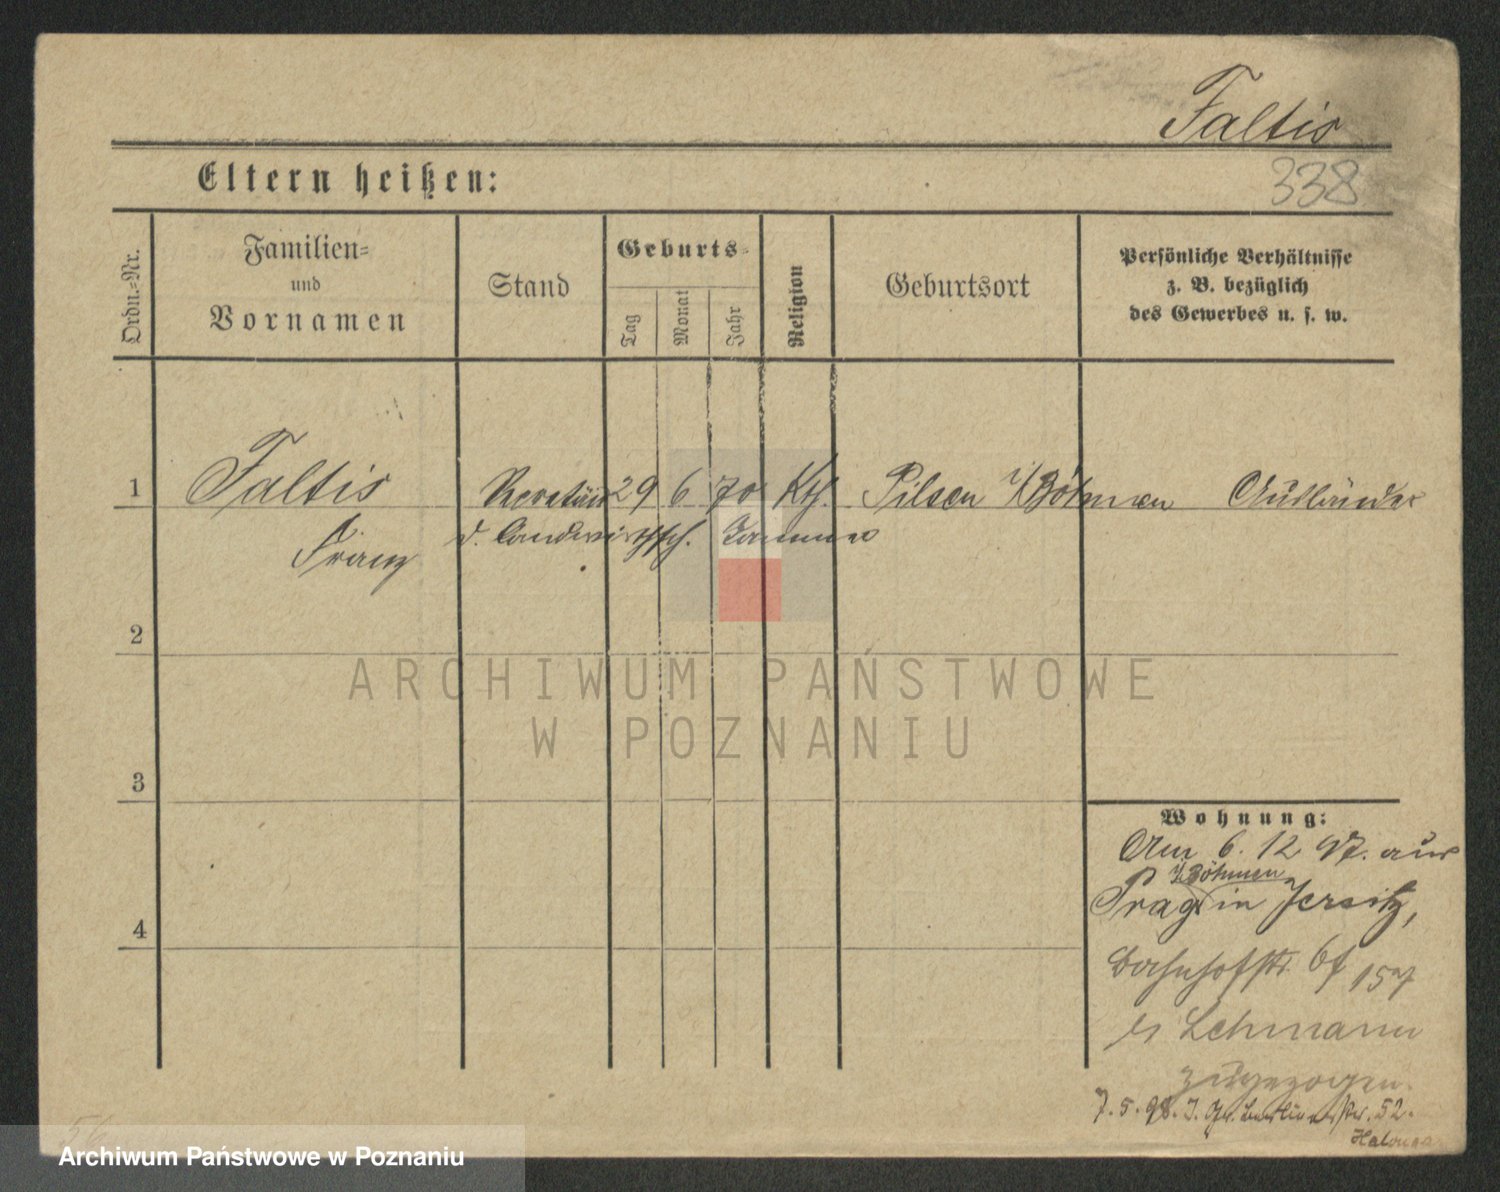 Faltis
338
Eltern heißen:
Ordn.-Nr.
Familien-
und
Vornamen
Stand
Geburts-
Tag
Monat
Jahr
Religion
Geburtsort
Persönliche Verhältnisse
z. B. bezüglich
des Gewerbes u. s. w.
1 Faltis 29 6 70 Kth. Pilsen i/Böhmen Ausländer
Franz d. Landwirthsch. Kammer
2
ARCHIWUM PAŃSTWOWE
W POZNANIU
3
Wohnung:
Am 6. 12 97. aus
i/Böhmen
Prag in Jersitz,
4
Bahnhofstr.
Lehmann
zugezogen.
7. 5. 98. 52.
56
Archiwum Państwowe w Poznaniu